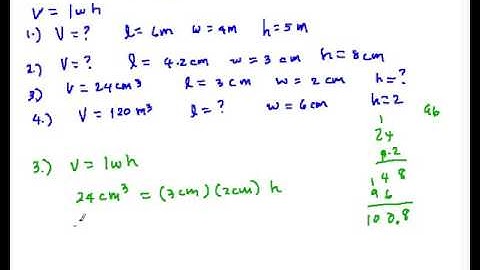 V = lwh
1.) V = ? l = 6m w = 4m h = 5m
2.) V = ? l = 4.2cm w = 3 cm h = 8cm
3) V = 24cm³ l = 3cm w = 2cm h = ?
4.) V = 120 m³ l = ? w = 6cm h = 2
96
1
24
4.2
1 48
96
100.8
3.) V = lwh
24cm³ = (3cm)(2cm) h